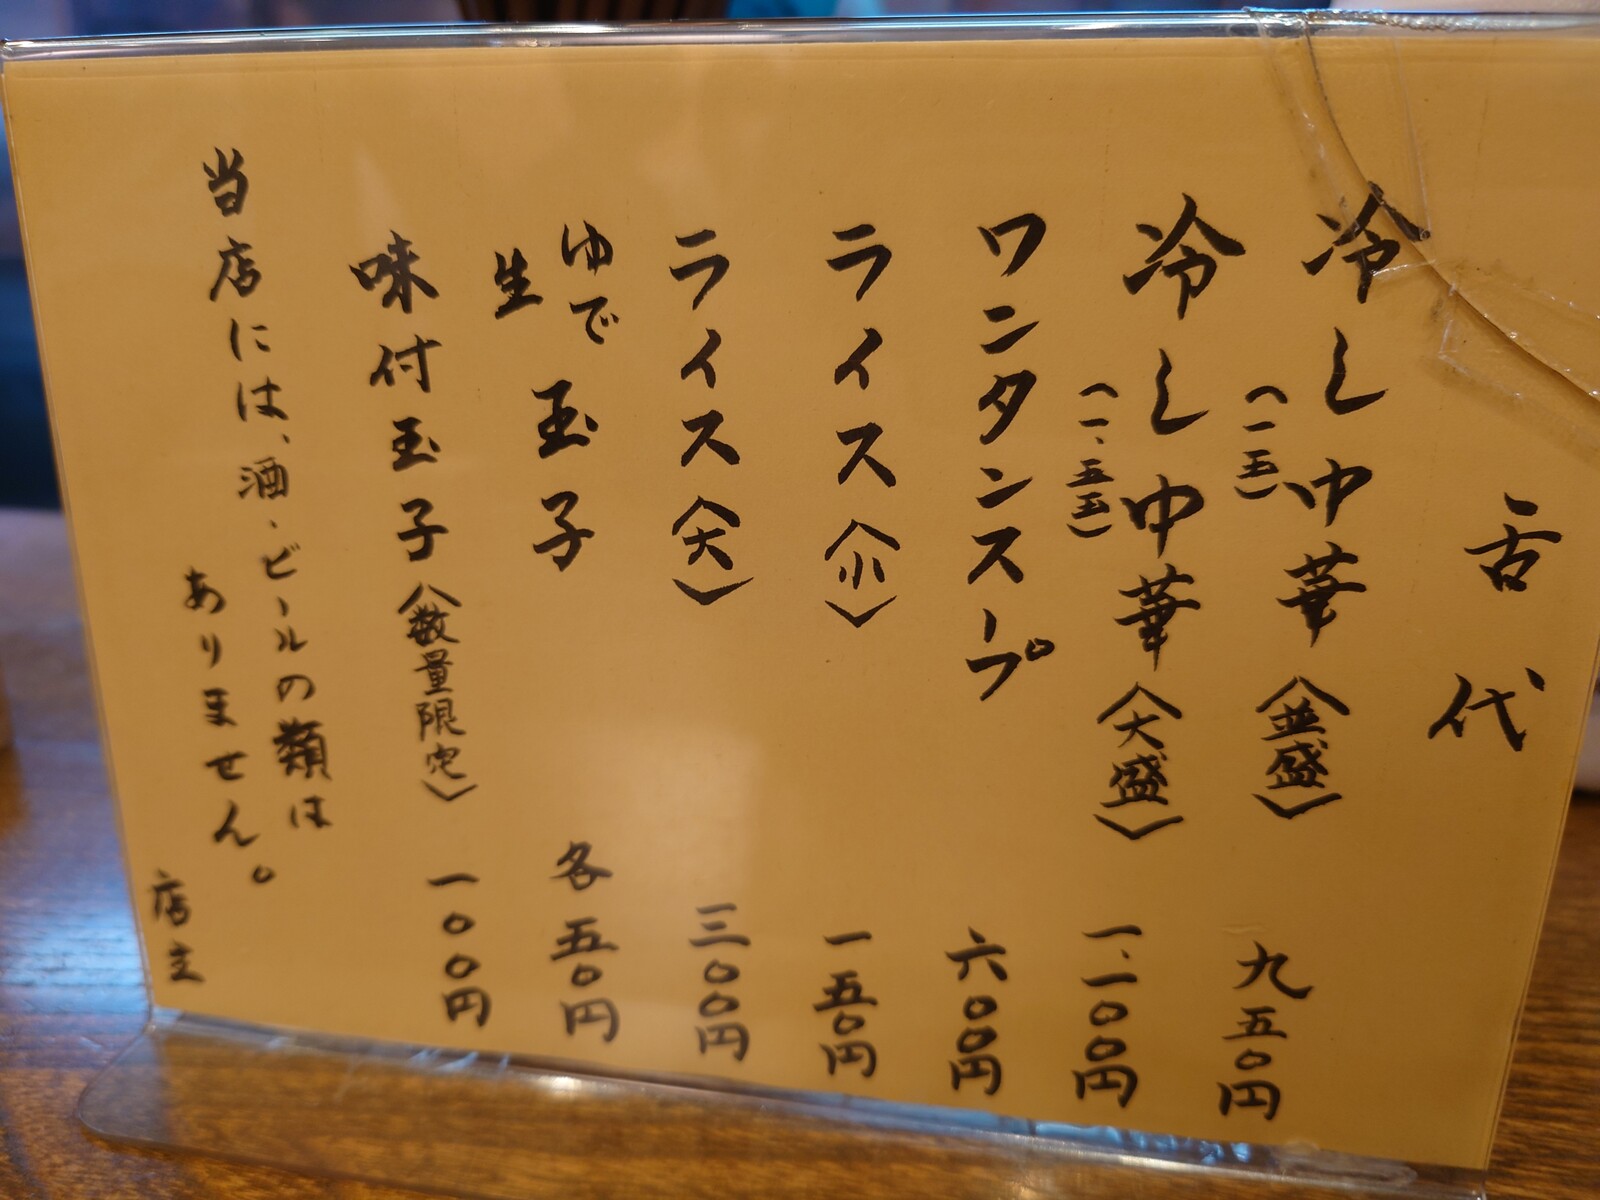 舌代
冷し中華〈並盛〉 九五〇円
(一玉)
冷し中華〈大盛〉 一、一〇〇円
(一、五玉)
ワンタンスープ 六〇〇円
ライス〈小〉 一五〇円
ライス〈大〉 三〇〇円
ゆで
生
玉子 各五〇円
味付玉子〈数量限定〉 一〇〇円
当店には、酒・ビールの類は
ありません。
店主